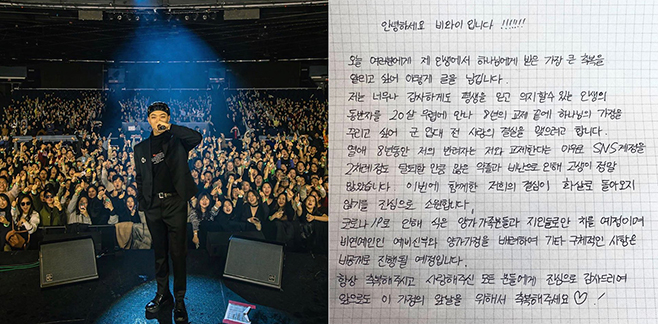 안녕하세요 비와이 입니다 !!!!!!!
오늘 여러분에게 제 인생에서 하나님에게 받은 가장 큰 축복을
알리고 싶어 이렇게 글을 남깁니다.
저는 너무나 감사하게도 평생을 믿고 의지할 수 있는 인생의
동반자를 20살 무렵에 만나 8년의 교제 끝에 하나님의 가정을
꾸리고 싶어 군 입대 전 사랑의 결실을 맺으려고 합니다.
연애 8년동안 저의 반려자는 저와 교제한다는 이유로 SNS계정을
2차례 정도 탈퇴한 만큼 많은 악플과 비난으로 인해 고생이 정말
많았습니다 이번에 함께한 저희의 결심이 화살로 돌아오지
않기를 진심으로 소원합니다.
코로나19로 인해 식은 양가 가족분들과 지인들로만 치를 예정이며
비연예인인 예비신부와 양가가정을 배려하여 기타 구체적인 사항은
비공개로 진행될 예정입니다.
항상 축복해주시고 사랑해주신 모든 분들에게 진심으로 감사드리며
앞으로도 이 가정의 앞날을 위해서 축복해주세요 ♡!